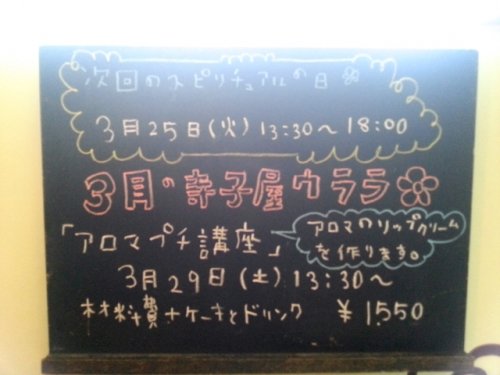 次回のスピリチュアルの日
3月25日(火)13:30〜18:00
3月の寺子屋ウララ
「アロマプチ講座」
アロマのリップクリーム
を作ります。
3月29日(土)13:30〜
材料費+ケーキとドリンク ¥1,550